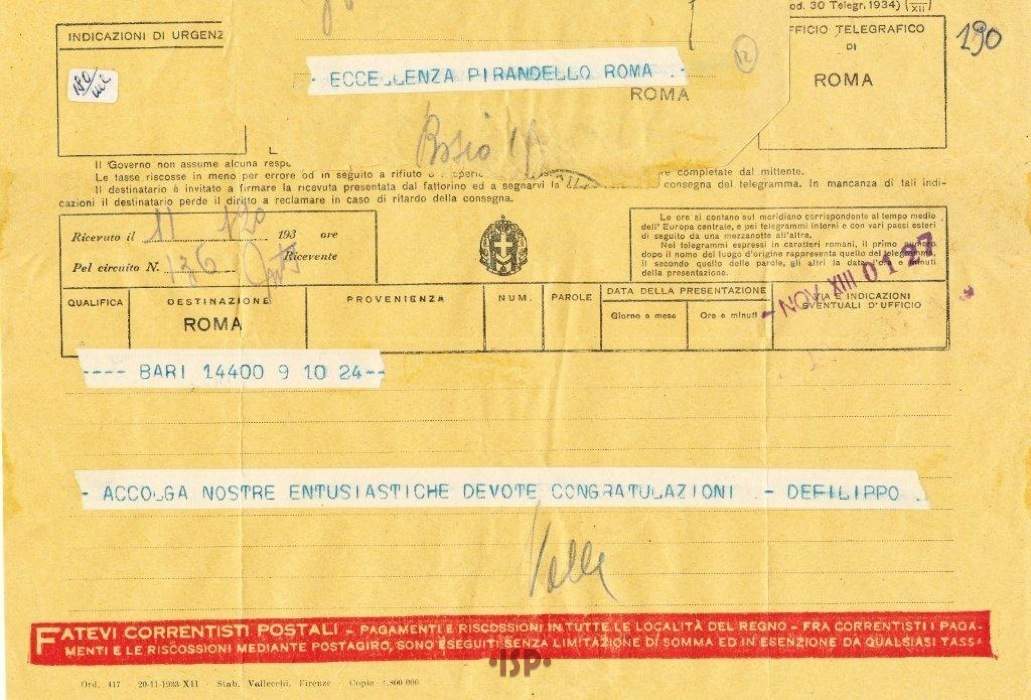 od. 30 Telegr. 1934) (XII)
INDICAZIONI DI URGENZ
FFICIO TELEGRAFICO
DI
ROMA
190
180
12
- ECCELLENZA PIRANDELLO ROMA .-
ROMA
Il Governo non assume alcuna resp
Le tasse riscosse in meno per errore od in seguito a rifiuto o completate dal mittente.
Il destinatario è invitato a firmare la ricevuta presentata dal fattorino ed a segnarvi la consegna del telegramma. In mancanza di tali indi-
cazioni il destinatario perde il diritto a reclamare in caso di ritardo della consegna.
Ricevuto il 11 120 193 ore
Pel circuito N. 136 Ricevente
Le ore si contano sul meridiano corrispondente al tempo medio
dell'Europa centrale, e pei telegrammi interni e con vari paesi esteri
di seguito da una mezzanotte all'altra.
Nei telegrammi espressi in caratteri romani, il primo numero
dopo il nome del luogo d'origine rappresenta quello del telegramma,
il secondo quello delle parole, gli altri la data, l'ora e minuti
della presentazione.
- NOV. XIII 0 1 27
QUALIFICA DESTINAZIONE PROVENIENZA NUM. PAROLE DATA DELLA PRESENTAZIONE VIA E INDICAZIONI
EVENTUALI D'UFFICIO
Giorno e mese Ore e minuti
ROMA
---- BARI 14400 9 10 24--
- ACCOLGA NOSTRE ENTUSIASTICHE DEVOTE CONGRATULAZIONI .- DEFILIPPO .
Valle
FATEVI CORRENTISTI POSTALI - PAGAMENTI E RISCOSSIONI IN TUTTE LE LOCALITÀ DEL REGNO - FRA CORRENTISTI I PAGA-
MENTI E LE RISCOSSIONI MEDIANTE POSTAGIRO, SONO ESEGUITI SENZA LIMITAZIONE DI SOMMA ED IN ESENZIONE DA QUALSIASI TASSA
•ISP•
Ord. 417 - 20-11-1933-XII - Stab. Vallecchi, Firenze - Copie 4.800.000